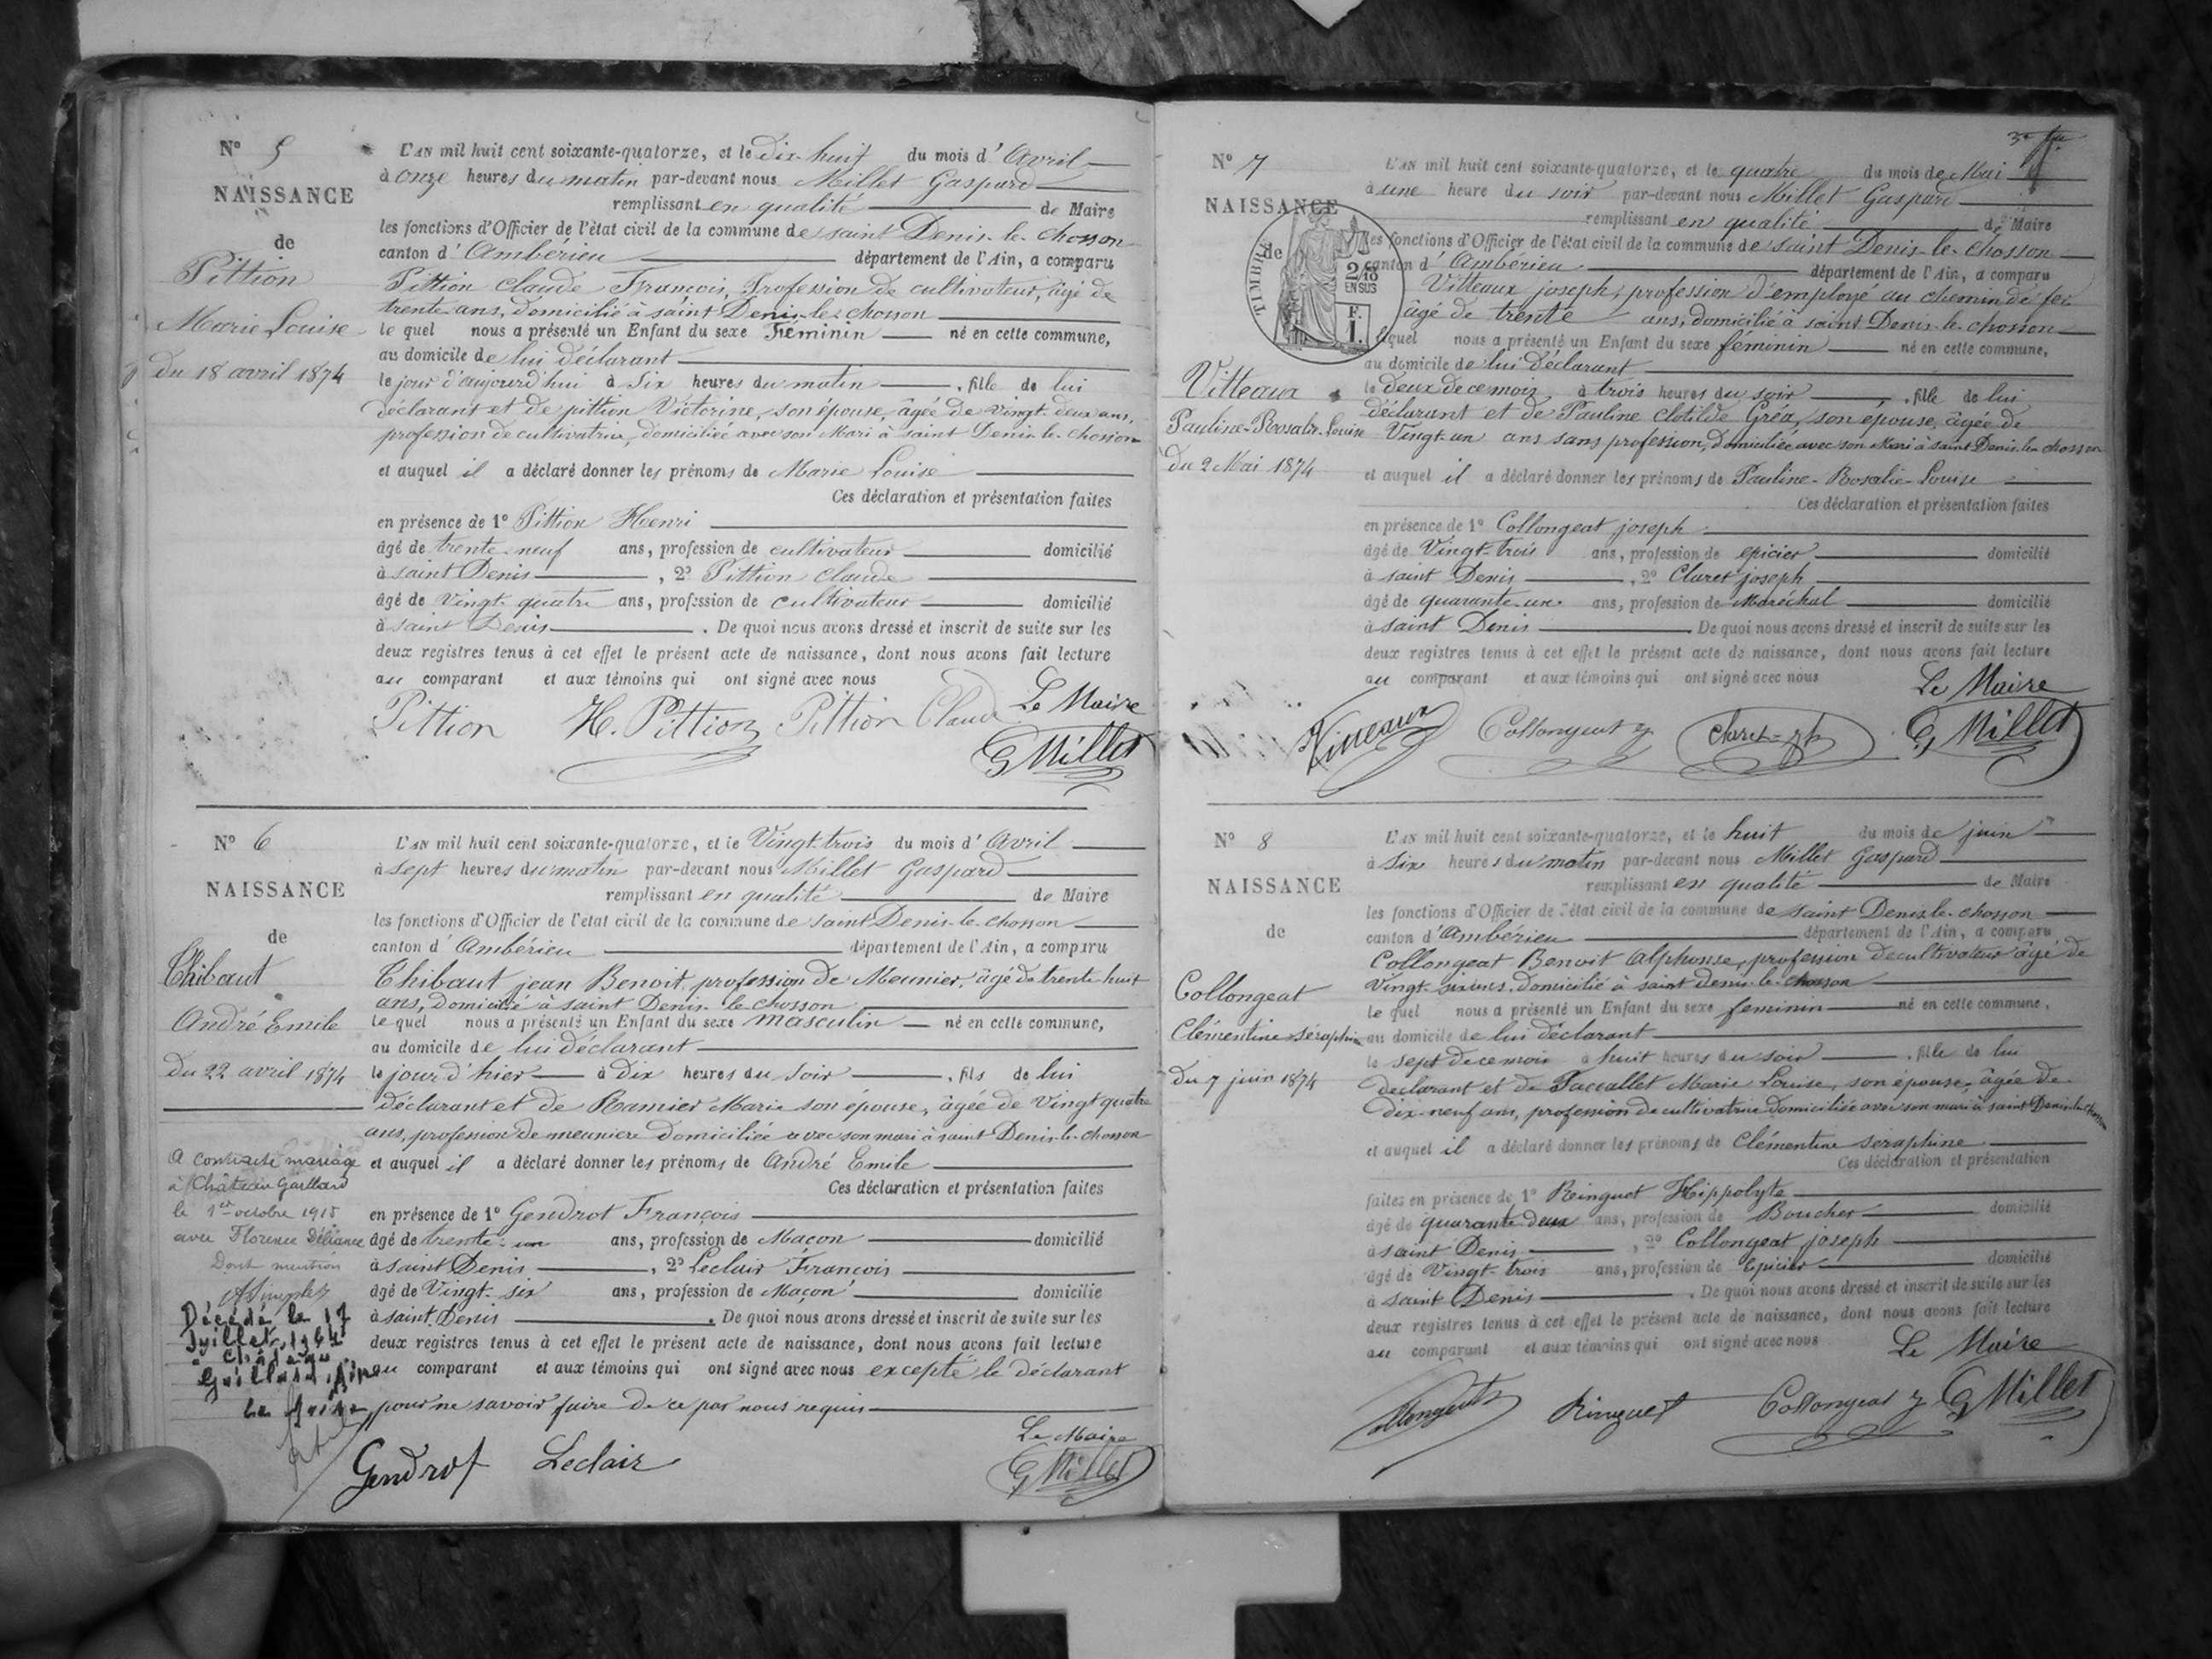 N° 5
NAISSANCE
de
Pittion
Marie Louise
du 18 avril 1874
L'AN mil huit cent soixante-quatorze, et le dix huit du mois d'Avril
à onze heures du matin par-devant nous Millet Gaspard
remplissant en qualité de Maire
les fonctions d'Officier de l'état civil de la commune de saint Denis-le-chosson
canton d'Ambérieu département de l'Ain, a comparu
Pittion claude François, Profession de cultivateur, âgé de
trente ans, domicilié à saint Denis-le-chosson
le quel nous a présenté un Enfant du sexe Féminin né en cette commune,
au domicile de lui déclarant
le jour d'aujourd'hui à six heures du matin, fille de lui
déclarant et de pittion Victorine, son épouse, âgée de vingt-deux ans,
profession de cultivatrice, domiciliée avec son Mari à saint Denis-le-chosson
et auquel il a déclaré donner les prénoms de Marie Louise
Ces déclaration et présentation faites
en présence de 1° Pittion Henri
âgé de trente-neuf ans, profession de cultivateur domicilié
à saint Denis, 2° Pittion claude
âgé de vingt-quatre ans, profession de cultivateur domicilié
à saint Denis. De quoi nous avons dressé et inscrit de suite sur les
deux registres tenus à cet effet le présent acte de naissance, dont nous avons fait lecture
au comparant et aux témoins qui ont signé avec nous
Le Maire
Pittion H. Pittion Pittion Claude
G Millet
N° 6
NAISSANCE
de
Thibaut
André Emile
du 22 avril 1874
A contracté mariage
à Château Gaillard
le 1er octobre 1915
avec Florence
Dont mention
Décédé le 17
Juillet 1964
à Château
Gaillard, Ain
Le Maire
L'AN mil huit cent soixante-quatorze, et le Vingt trois du mois d'Avril
à sept heures du matin par-devant nous Millet Gaspard
remplissant en qualité de Maire
les fonctions d'Officier de l'état civil de la commune de saint Denis-le-chosson
canton d'Ambérieu département de l'Ain, a comparu
Thibaut jean Benoit, profession de Meunier, âgé de trente-huit
ans, domicilié à saint Denis-le-chosson
le quel nous a présenté un Enfant du sexe masculin né en cette commune,
au domicile de lui déclarant
le jour d'hier à dix heures du soir, fils de lui
déclarant et de Ramier Marie son épouse, âgée de vingt quatre
ans, profession de meuniere domiciliée avec son mari à saint Denis-le-chosson
et auquel il a déclaré donner les prénoms de André Emile
Ces déclaration et présentation faites
en présence de 1° Gendrot François
âgé de trente-un ans, profession de Maçon domicilié
à saint Denis, 2° Leclair François
âgé de Vingt-six ans, profession de Maçon domicilié
à saint Denis. De quoi nous avons dressé et inscrit de suite sur les
deux registres tenus à cet effet le présent acte de naissance, dont nous avons fait lecture
au comparant et aux témoins qui ont signé avec nous excepté le déclarant
pour ne savoir faire de ce par nous requis
Le Maire
Gendrot Leclair
G Millet
N° 7
NAISSANCE
de
TIMBRE
2/10
EN SUS
F.
1.
Vitteaux
Pauline-Rosalie-Louise
du 2 Mai 1874
L'AN mil huit cent soixante-quatorze, et le quatre du mois de Mai
à une heure du soir par-devant nous Millet Gaspard
remplissant en qualité de Maire
les fonctions d'Officier de l'état civil de la commune de saint Denis-le-chosson
canton d'Ambérieu département de l'Ain, a comparu
Vitteaux joseph, profession d'employé au chemin de fer
âgé de trente ans, domicilié à saint Denis-le-chosson
lequel nous a présenté un Enfant du sexe féminin né en cette commune,
au domicile de lui déclarant
le deux de ce mois à trois heures du soir, fille de lui
déclarant et de Pauline Clotilde Gréa, son épouse, âgée de
Vingt-un ans sans profession, domiciliée avec son Mari à saint Denis-le-chosson
et auquel il a déclaré donner les prénoms de Pauline-Rosalie-Louise
Ces déclaration et présentation faites
en présence de 1° Collongeat joseph
âgé de Vingt-trois ans, profession de epicier domicilié
à saint Denis, 2° Claret joseph
âgé de quarante-un ans, profession de Maréchal domicilié
à saint Denis. De quoi nous avons dressé et inscrit de suite sur les
deux registres tenus à cet effet le présent acte de naissance, dont nous avons fait lecture
au comparant et aux témoins qui ont signé avec nous
Le Maire
Vitteaux Collongeat j Claret G Millet
N° 8
NAISSANCE
de
Collongeat
Clémentine séraphine
du 7 juin 1874
L'AN mil huit cent soixante-quatorze, et le huit du mois de juin
à six heures du matin par-devant nous Millet Gaspard
remplissant en qualité de Maire
les fonctions d'Officier de l'état civil de la commune de saint Denis-le-chosson
canton d'Ambérieu département de l'Ain, a comparu
Collongeat Benoit Alphonse, profession de cultivateur âgé de
Vingt-six ans, domicilié à saint Denis-le-chosson
le quel nous a présenté un Enfant du sexe feminin né en cette commune,
au domicile de lui déclarant
le sept de ce mois à huit heures du soir, fille de lui
declarant et de Paccallet Marie Louise, son épouse, âgée de
dix-neuf ans, profession de cultivatrice domiciliée avec son mari à saint Denis-le-chosson
et auquel il a déclaré donner les prénoms de Clémentine seraphine
Ces déclaration et présentation
faites en présence de 1° Ringuet Hippolyte
âgé de quarante-deux ans, profession de Boucher domicilié
à saint Denis, 2° Collongeat joseph
âgé de Vingt-trois ans, profession de Epicier domicilié
à saint Denis. De quoi nous avons dressé et inscrit de suite sur les
deux registres tenus à cet effet le présent acte de naissance, dont nous avons fait lecture
au comparant et aux témoins qui ont signé avec nous
Le Maire
Ringuet Collongeat j G Millet